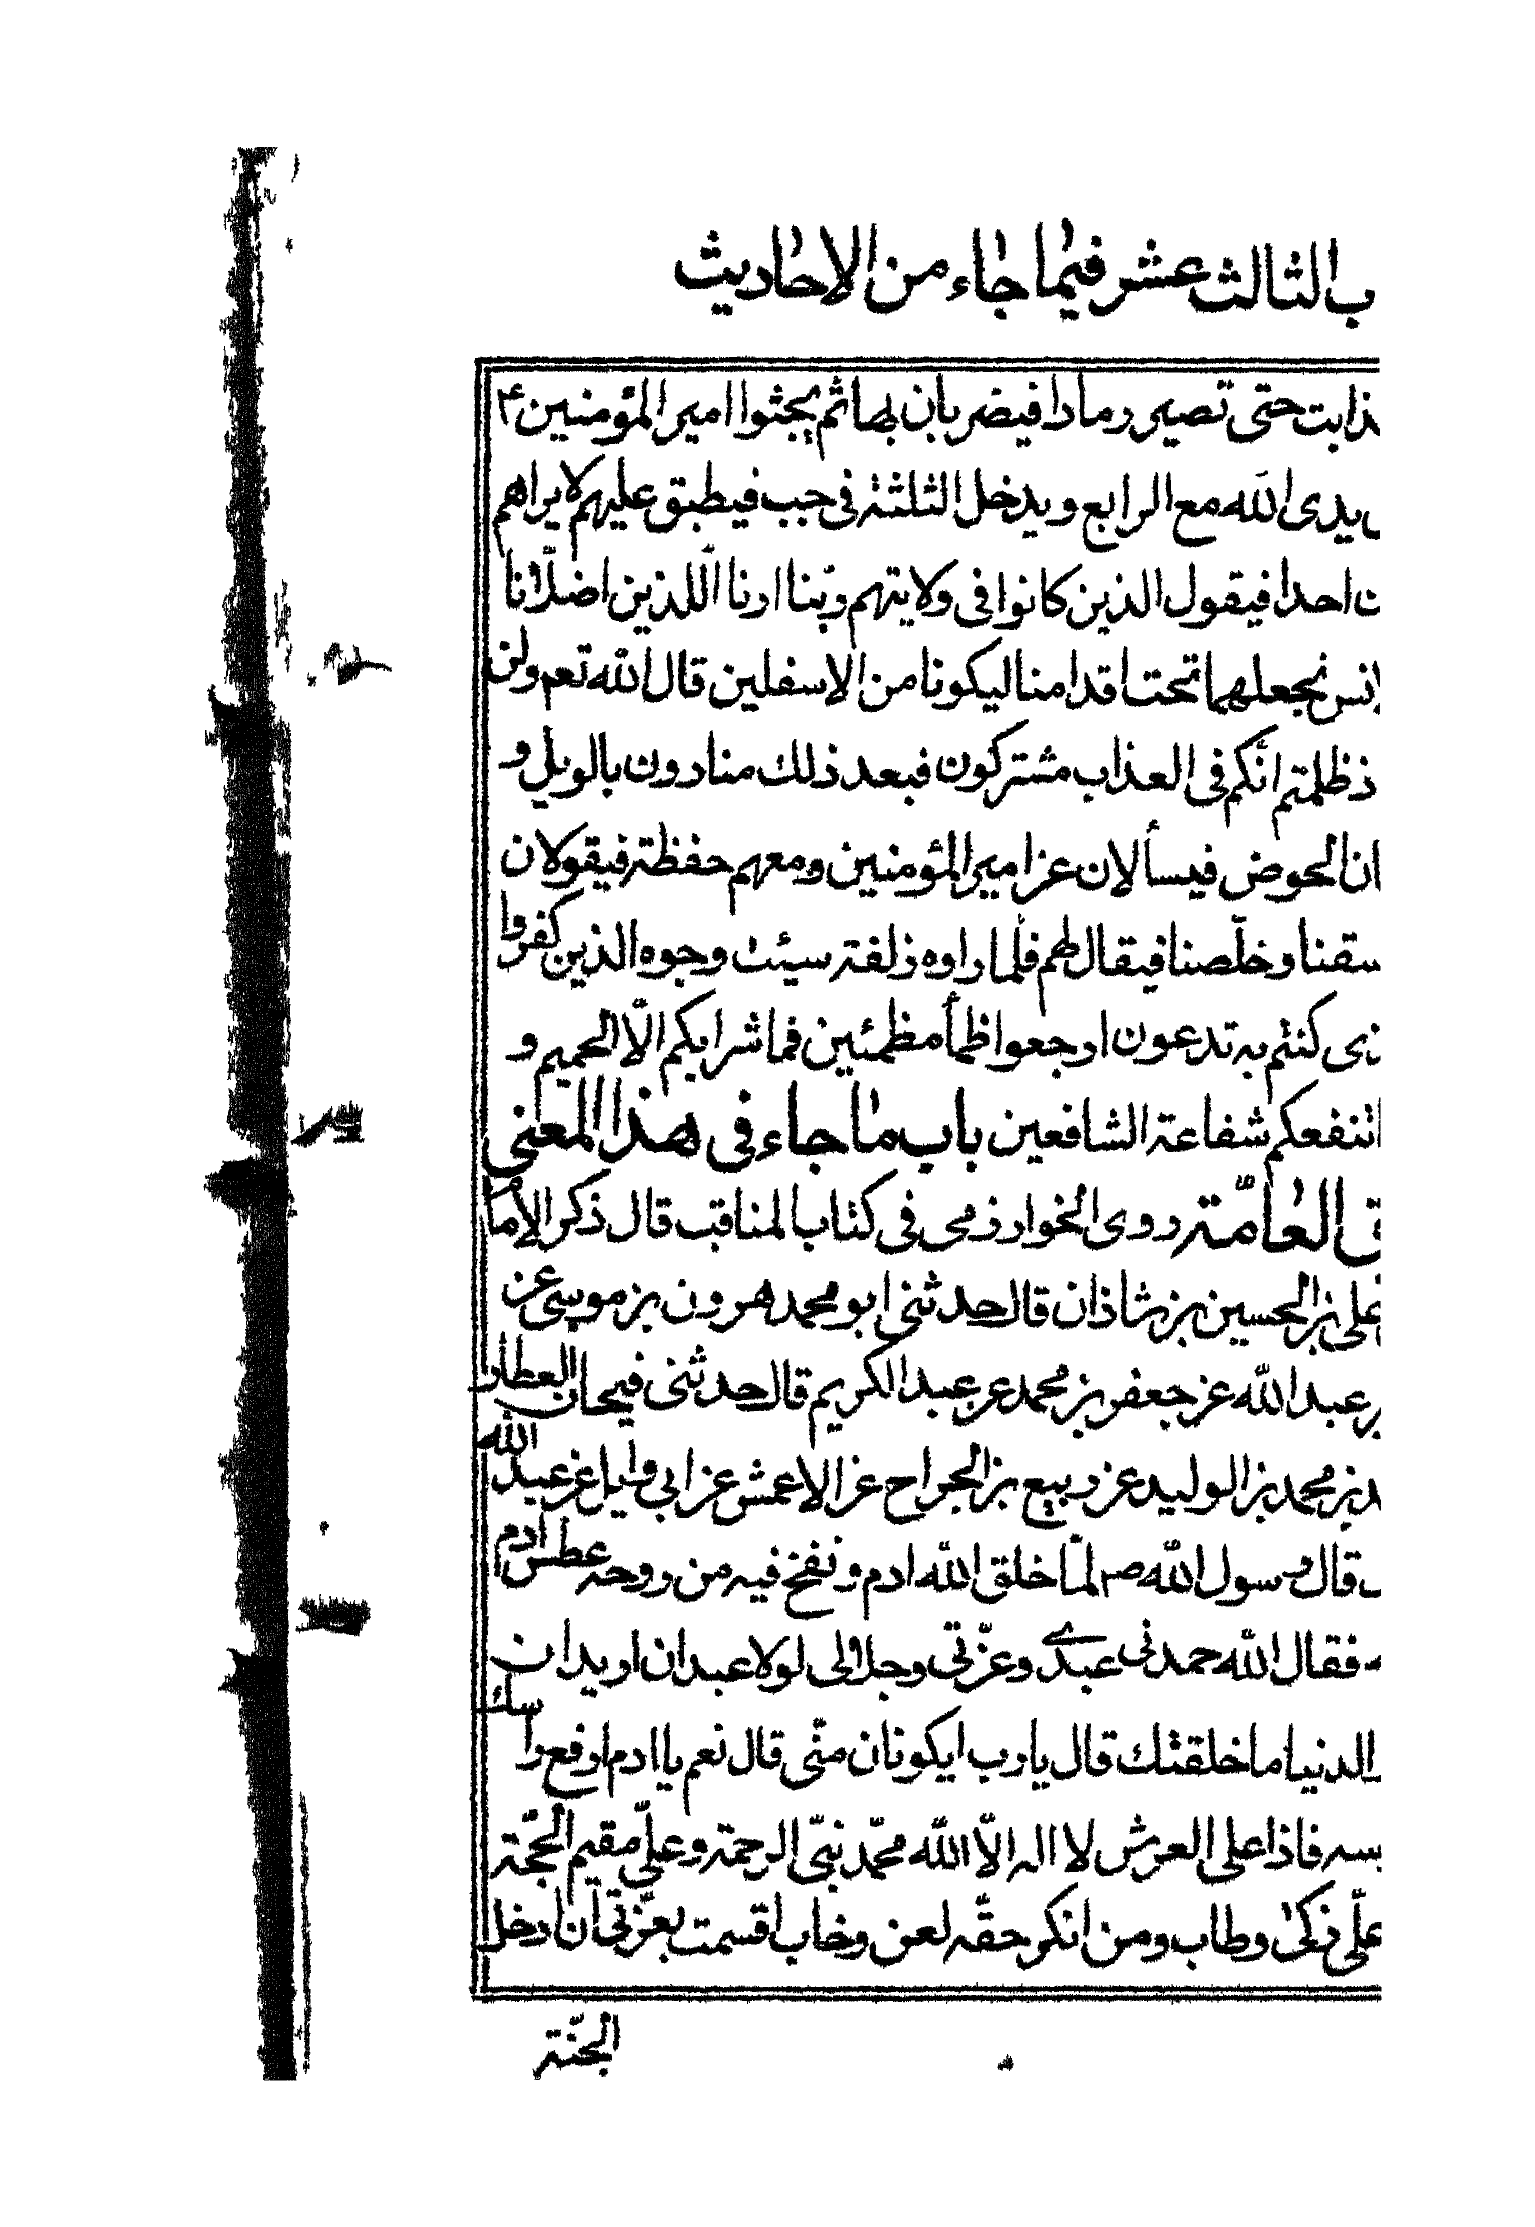 ب الثالث عشر فيما جاء من الاحاديث
ذابت حتى تصير رمادا فيضربان بها ثم يجثوا امير المؤمنين ع
يدى الله مع الرابع ويدخل الثلثة فى جب فيطبق عليهم لا يراهم
احدا فيقول الذين كانوا فى ولايتهم ربنا ارنا اللذين اضلانا
لانس نجعلهما تحت اقدامنا ليكونا من الاسفلين قال الله تعم ولن
ذ ظلمتم انكم فى العذاب مشتركون فبعد ذلك منادون بالويل و
ان الحوض فيسألان عن امير المؤمنين ومعهم حفظة فيقولان
سقنا وخلّصنا فيقال لهم فلما راوه زلفة سيئت وجوه الذين كفروا
ذى كنتم به تدعون ارجعوا ظمأ مظمئين فما شرابكم الّا الحميم و
تنفعكم شفاعة الشافعين باب ما جاء فى هذا المعنى
ق العامّة روى الخوارزمى فى كتاب المناقب قال ذكر الاما
على بن الحسين بن شاذان قال حدثنى ابو محمد هرون بن موسى عن
عبد الله عن جعفر بن محمد عن عبد الكريم قال حدثنى فيحان العطار
بن محمد بن الوليد عن ربيع بن الجراح عن الاعمش عن ابى وايل عن عبد الله
قال رسول الله ص لمّا خلق الله ادم ونفخ فيه من روحه عطس ادم
فقال الله حمدنى عبدى وعزّتى وجلالى لولا عبدان اريد ان
الدنيا ما خلقتك قال يا رب ايكونان منّى قال نعم يا ادم ارفع راسك
سه فاذا على العرش لا اله الّا الله محمّد نبىّ الرحمة وعلىّ مقيم الحجّة
علىّ زكى وطاب ومن انكر حقّه لعن وخاب اقسمت بعزّتى ان ادخل
الجنّة